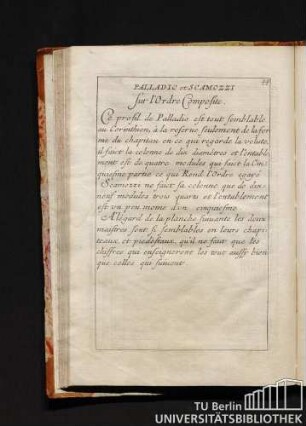 48
PALLADIO et SCAMOZZI
Sur l'Ordre Composite.
Ce profil de Palladio est tout semblable
au Corinthien, à la reserve seulement de la for
me du chapitau en ce qui regarde la volute
il faict la colonne de dix diametres et l'entable
ment est de quatre modules qui faict la Cin
quiesme partie ce qui Rend l'Ordre egaré
Scamozzi ne faict sa colonne que de dix
neuf modules trois quarts et l'entablement
est un peu moins d'un cinquiesme
A l'egard de la planche suivante les deux
maistres sont si semblables en leurs chapi
teaux et piedestaux, qu'il ne faut que les
chiffres qui enseigneront les uns aussy bien
que celles qui suivent
TU Berlin
UNIVERSITÄTSBIBLIOTHEK